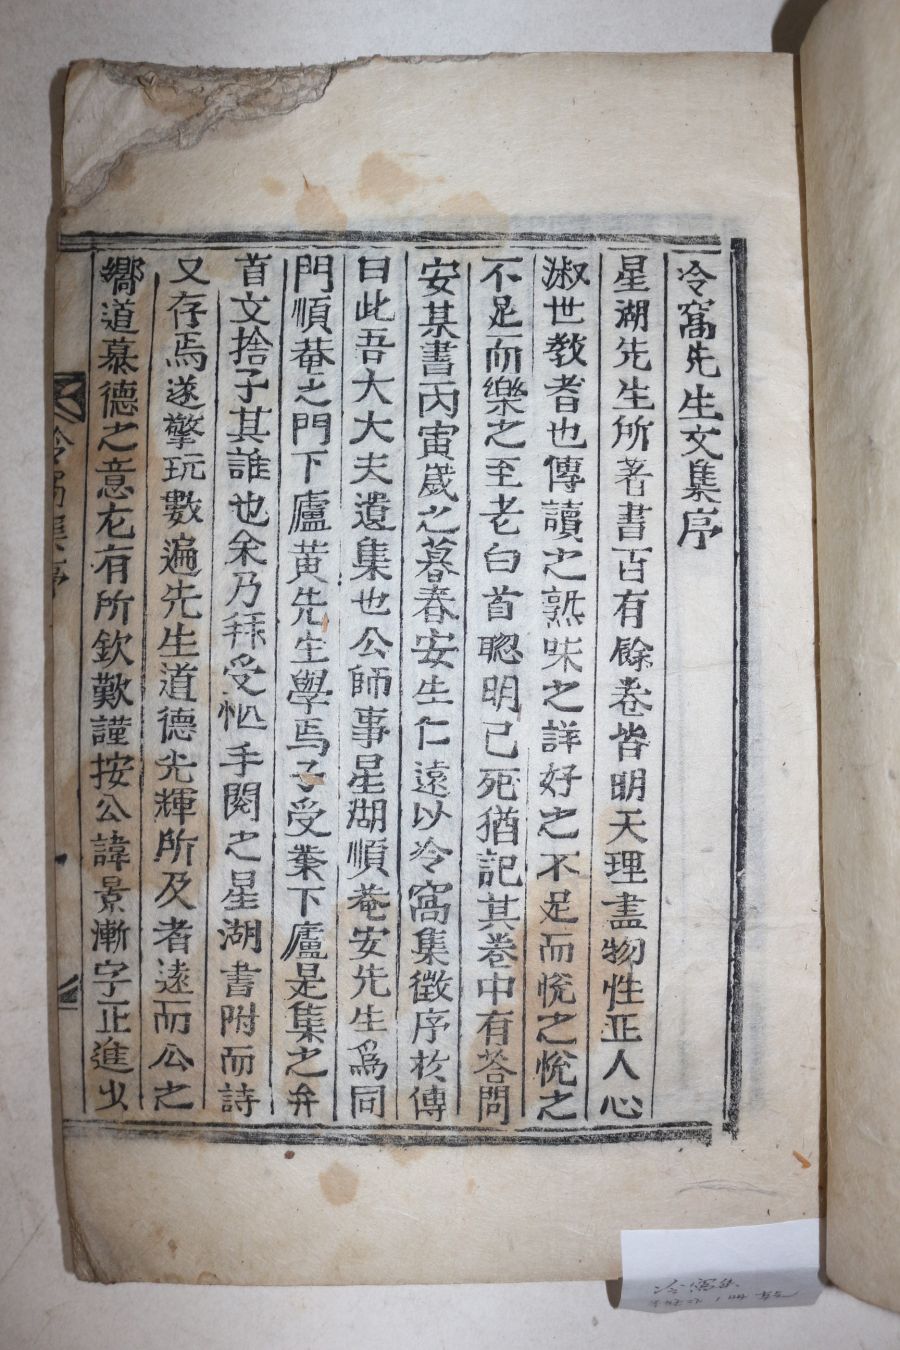 冷窩先生文集序
星湖先生所著書百有餘卷皆明天理盡物性正人心
淑世敎者也傳讀之熟味之詳好之不足而悅之悅之
不足而樂之至老白首聰明已死猶記其卷中有答問
安某書丙寅歲之暮春安生仁遠以冷窩集徵序於傳
曰此吾大大夫遺集也公師事星湖順菴安先生爲同
門順菴之門下廬黃先生學焉子受業下廬是集之弁
首文捨子其誰也余乃拜受忙手閱之星湖書附而詩
又存焉遂擎玩數遍先生道德光輝所及者遠而公之
嚮道慕德之意尤有所欽歎謹按公諱景漸字正進少
冷窩集序